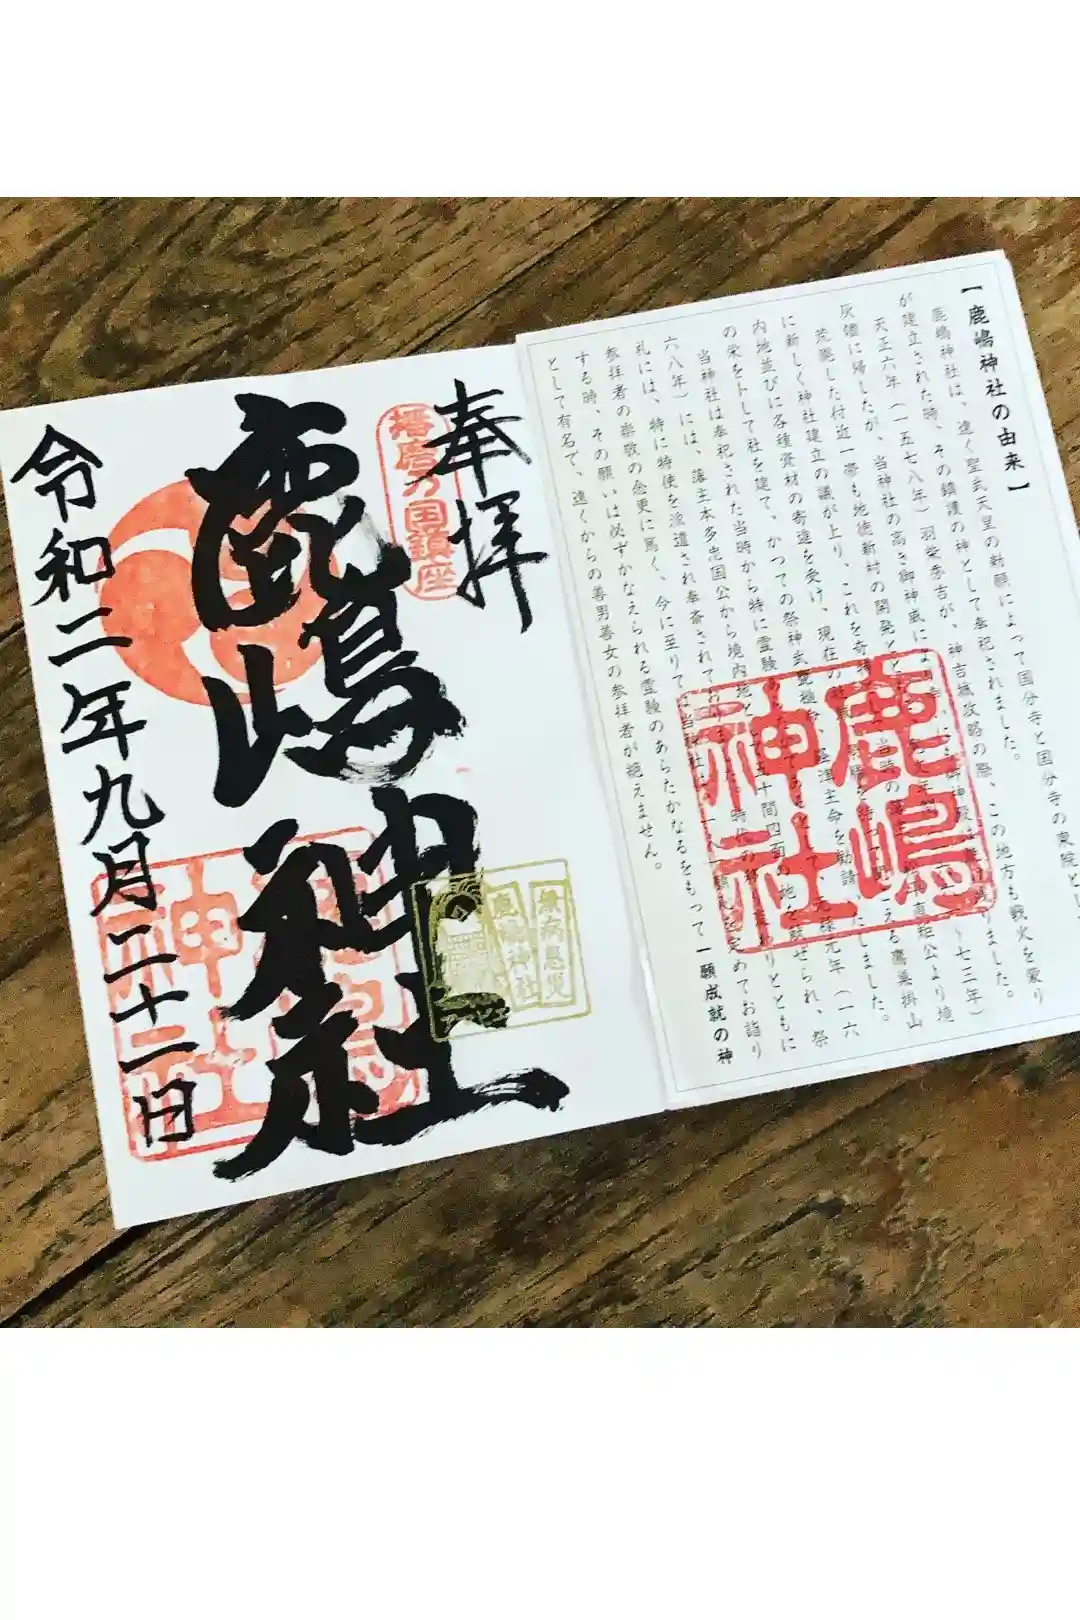 【鹿嶋神社の由来】
鹿嶋神社は、遠く聖武天皇の勅願によって国分寺と国分寺の東院とし
が建立された時、その鎮護の神として奉祀されました。
天正六年（一五七八年）羽柴秀吉が、神吉城攻略の際、この地方も戦火を蒙り
灰燼に帰したが、当神社の高き御神威により
荒廃した付近一帯も地徳新村の開発と
に新しく神社建立の議が上り、これを奇特
内地並びに各種資材の寄進を受け、現在の
の栄をトして社を建て、かつての祭神武甕槌
当神社は奉祀された当時から特に霊験
六八年）には、藩主本多忠国公から境内地と
礼には、特に特使を派遣され奉斎されて
参拝者の崇敬の念更に篤く、今に至りては当神社
する時、その願いは必ずかなえられる霊験のあらたかなるをもって一願成就の神
として有名で、遠くからの善男善女の参拝者が絶えません。
鹿嶋
神社
奉拝
播磨乃国鎮座
鹿嶋神社
令和二年九月二十二日
無病息災
鹿嶋神社
アマビエ